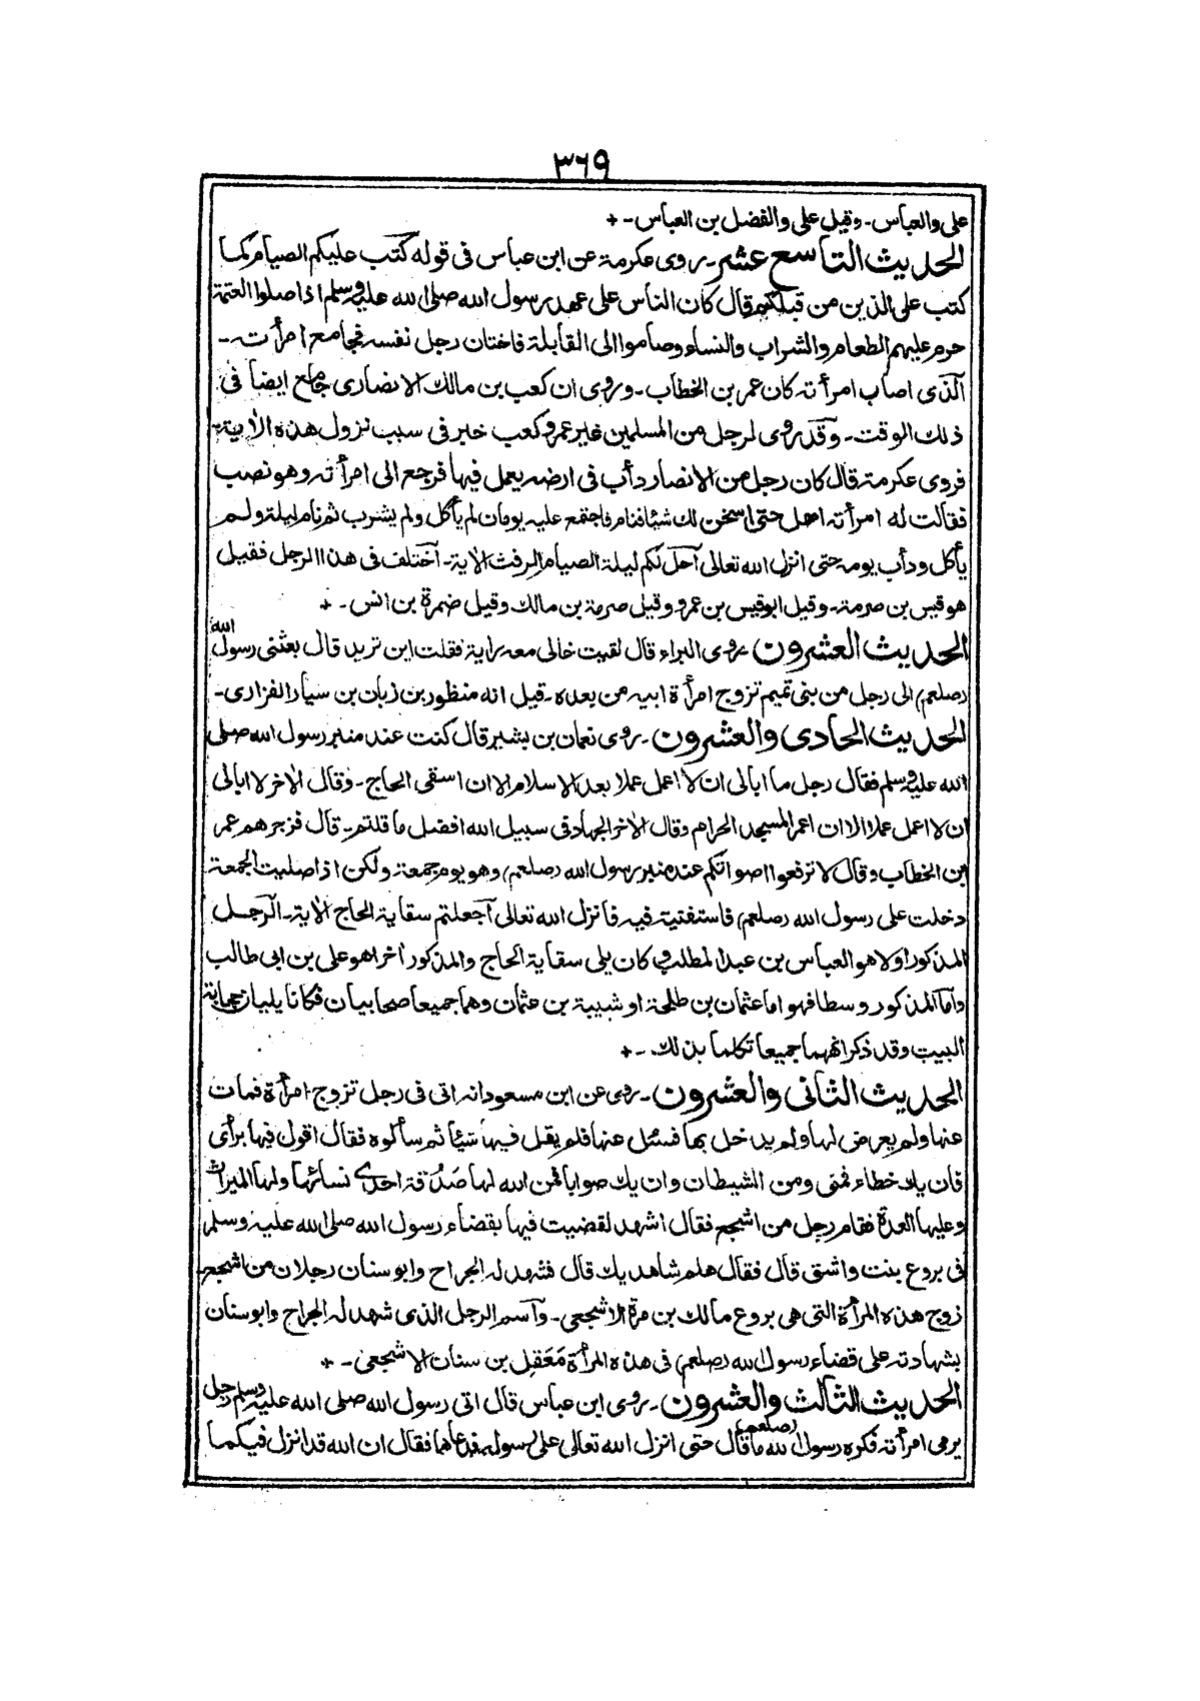 ٣٦٩
على والعباس۔ وقيل على والفضل بن العباس۔ +
الحديث التاسع عشر۔ روى عكرمة عن ابن عباس فى قوله كتب عليكم الصيام كما
كتب على الذين من قبلكم قال كان الناس على عهد رسول الله صلى الله عليه وسلم اذا صلوا العتمة
حرم عليهم الطعام والشراب والنساء وصاموا الى القابلة فاختان رجل نفسه فجامع امرأته۔
الذى اصاب امرأته كان عمر بن الخطاب۔ وروى ان كعب بن مالك الانصارى جامع ايضا فى
ذلك الوقت۔ وقد روى لرجل من المسلمين غير عمر وكعب خبر فى سبب نزول هذه الاية۔
فروى عكرمة قال كان رجل من الانصار دأب فى ارضه يعمل فيها فرجع الى امرأته وهو نصب
فقالت له امرأته امهل حتى اسخن لك شيئا فنام فاجتمع عليه يومان لم يأكل ولم يشرب ثم نام ليلة ولم
يأكل ودأب يومه حتى انزل الله تعالى احل لكم ليلة الصيام الرفث الاية۔ اختلف فى هذا الرجل فقيل
هو قيس بن صرمة۔ وقيل ابو قيس بن عمرو وقيل صرمة بن مالك وقيل ضمرة بن انس۔ +
الحديث العشرون روى البراء قال لقيت خالى معه راية فقلت اين تريد قال بعثنى رسول الله
(صلعم) الى رجل من بنى تميم تزوج امرأة ابيه من بعده۔ قيل انه منظور بن زبان بن سيار الفزارى۔
الحديث الحادى والعشرون۔ روى نعمان بن بشير قال كنت عند منبر رسول الله صلى
الله عليه وسلم فقال رجل ما ابالى ان لا اعمل عملا بعد الاسلام الا ان اسقى الحاج۔ وقال الاخر لا ابالى
ان لا اعمل عملا الا ان اعمر المسجد الحرام وقال الاخر الجهاد فى سبيل الله افضل ما قلتم۔ قال فزجرهم عمر
بن الخطاب وقال لا ترفعوا اصواتكم عند منبر رسول الله (صلعم) وهو يوم جمعة ولكن اذا صليت الجمعة
دخلت على رسول الله (صلعم) فاستفتيته فيه فانزل الله تعالى اجعلتم سقاية الحاج الاية۔ الرجل
المذكور اولا هو العباس بن عبد المطلب وكان يلى سقاية الحاج والمذكور اخرا هو على بن ابى طالب
واما المذكور وسطا فهو اما عثمان بن طلحة او شيبة بن عثمان وهما جميعا صحابيان فكانا يليان حجابة
البيت وقد ذكر انهما جميعا تكلما بذلك۔ +
الحديث الثانى والعشرون۔ روى عن ابن مسعود انه اتى فى رجل تزوج امرأة فمات
عنها ولم يعرض لها ولم يدخل بها فسئل عنها فلم يقل فيها شيئا ثم سألوه فقال اقول فيها برأى
فان يك خطاء فمنى ومن الشيطان وان يك صوابا فمن الله لها صدقة احدى نسائها ولها الميراث
وعليها العدة فقام رجل من اشجع فقال اشهد لقضيت فيها بقضاء رسول الله صلى الله عليه وسلم
فى بروع بنت واشق قال فقال هلم شاهديك قال فشهد له الجراح وابو سنان رجلان من اشجع
زوج هذه المرأة التى هى بروع مالك بن مرة الاشجعى۔ واسم الرجل الذى شهد له الجراح وابو سنان
بشهادته على قضاء رسول الله (صلعم) فى هذه المرأة مَعقِل بن سنان الاشجعى۔ +
الحديث الثالث والعشرون۔ روى ابن عباس قال اتى رسول الله صلى الله عليه وسلم رجل
يرمى امرأته فكره رسول الله (صلعم) ما قال حتى انزل الله تعالى على رسوله فدعاهما فقال ان الله قد انزل فيكما